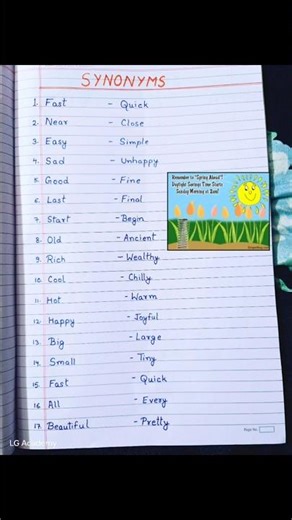 SYNONYMS
1. Fast - Quick
2. Near - Close
3. Easy - Simple
4. Sad - Unhappy
5. Good - Fine
6. Last - Final
7. Start - Begin
8. Old - Ancient
9. Rich - Wealthy
10. Cool - Chilly
11. Hot - Warm
12. Happy - Joyful
13. Big - Large
14. Small - Tiny
15. Fast - Quick
16. All - Every
17. Beautiful - Pretty
Remember to "Spring Ahead"!
Daylight Savings Time Starts
Sunday Morning at 2am!
Page No.
LG Academy